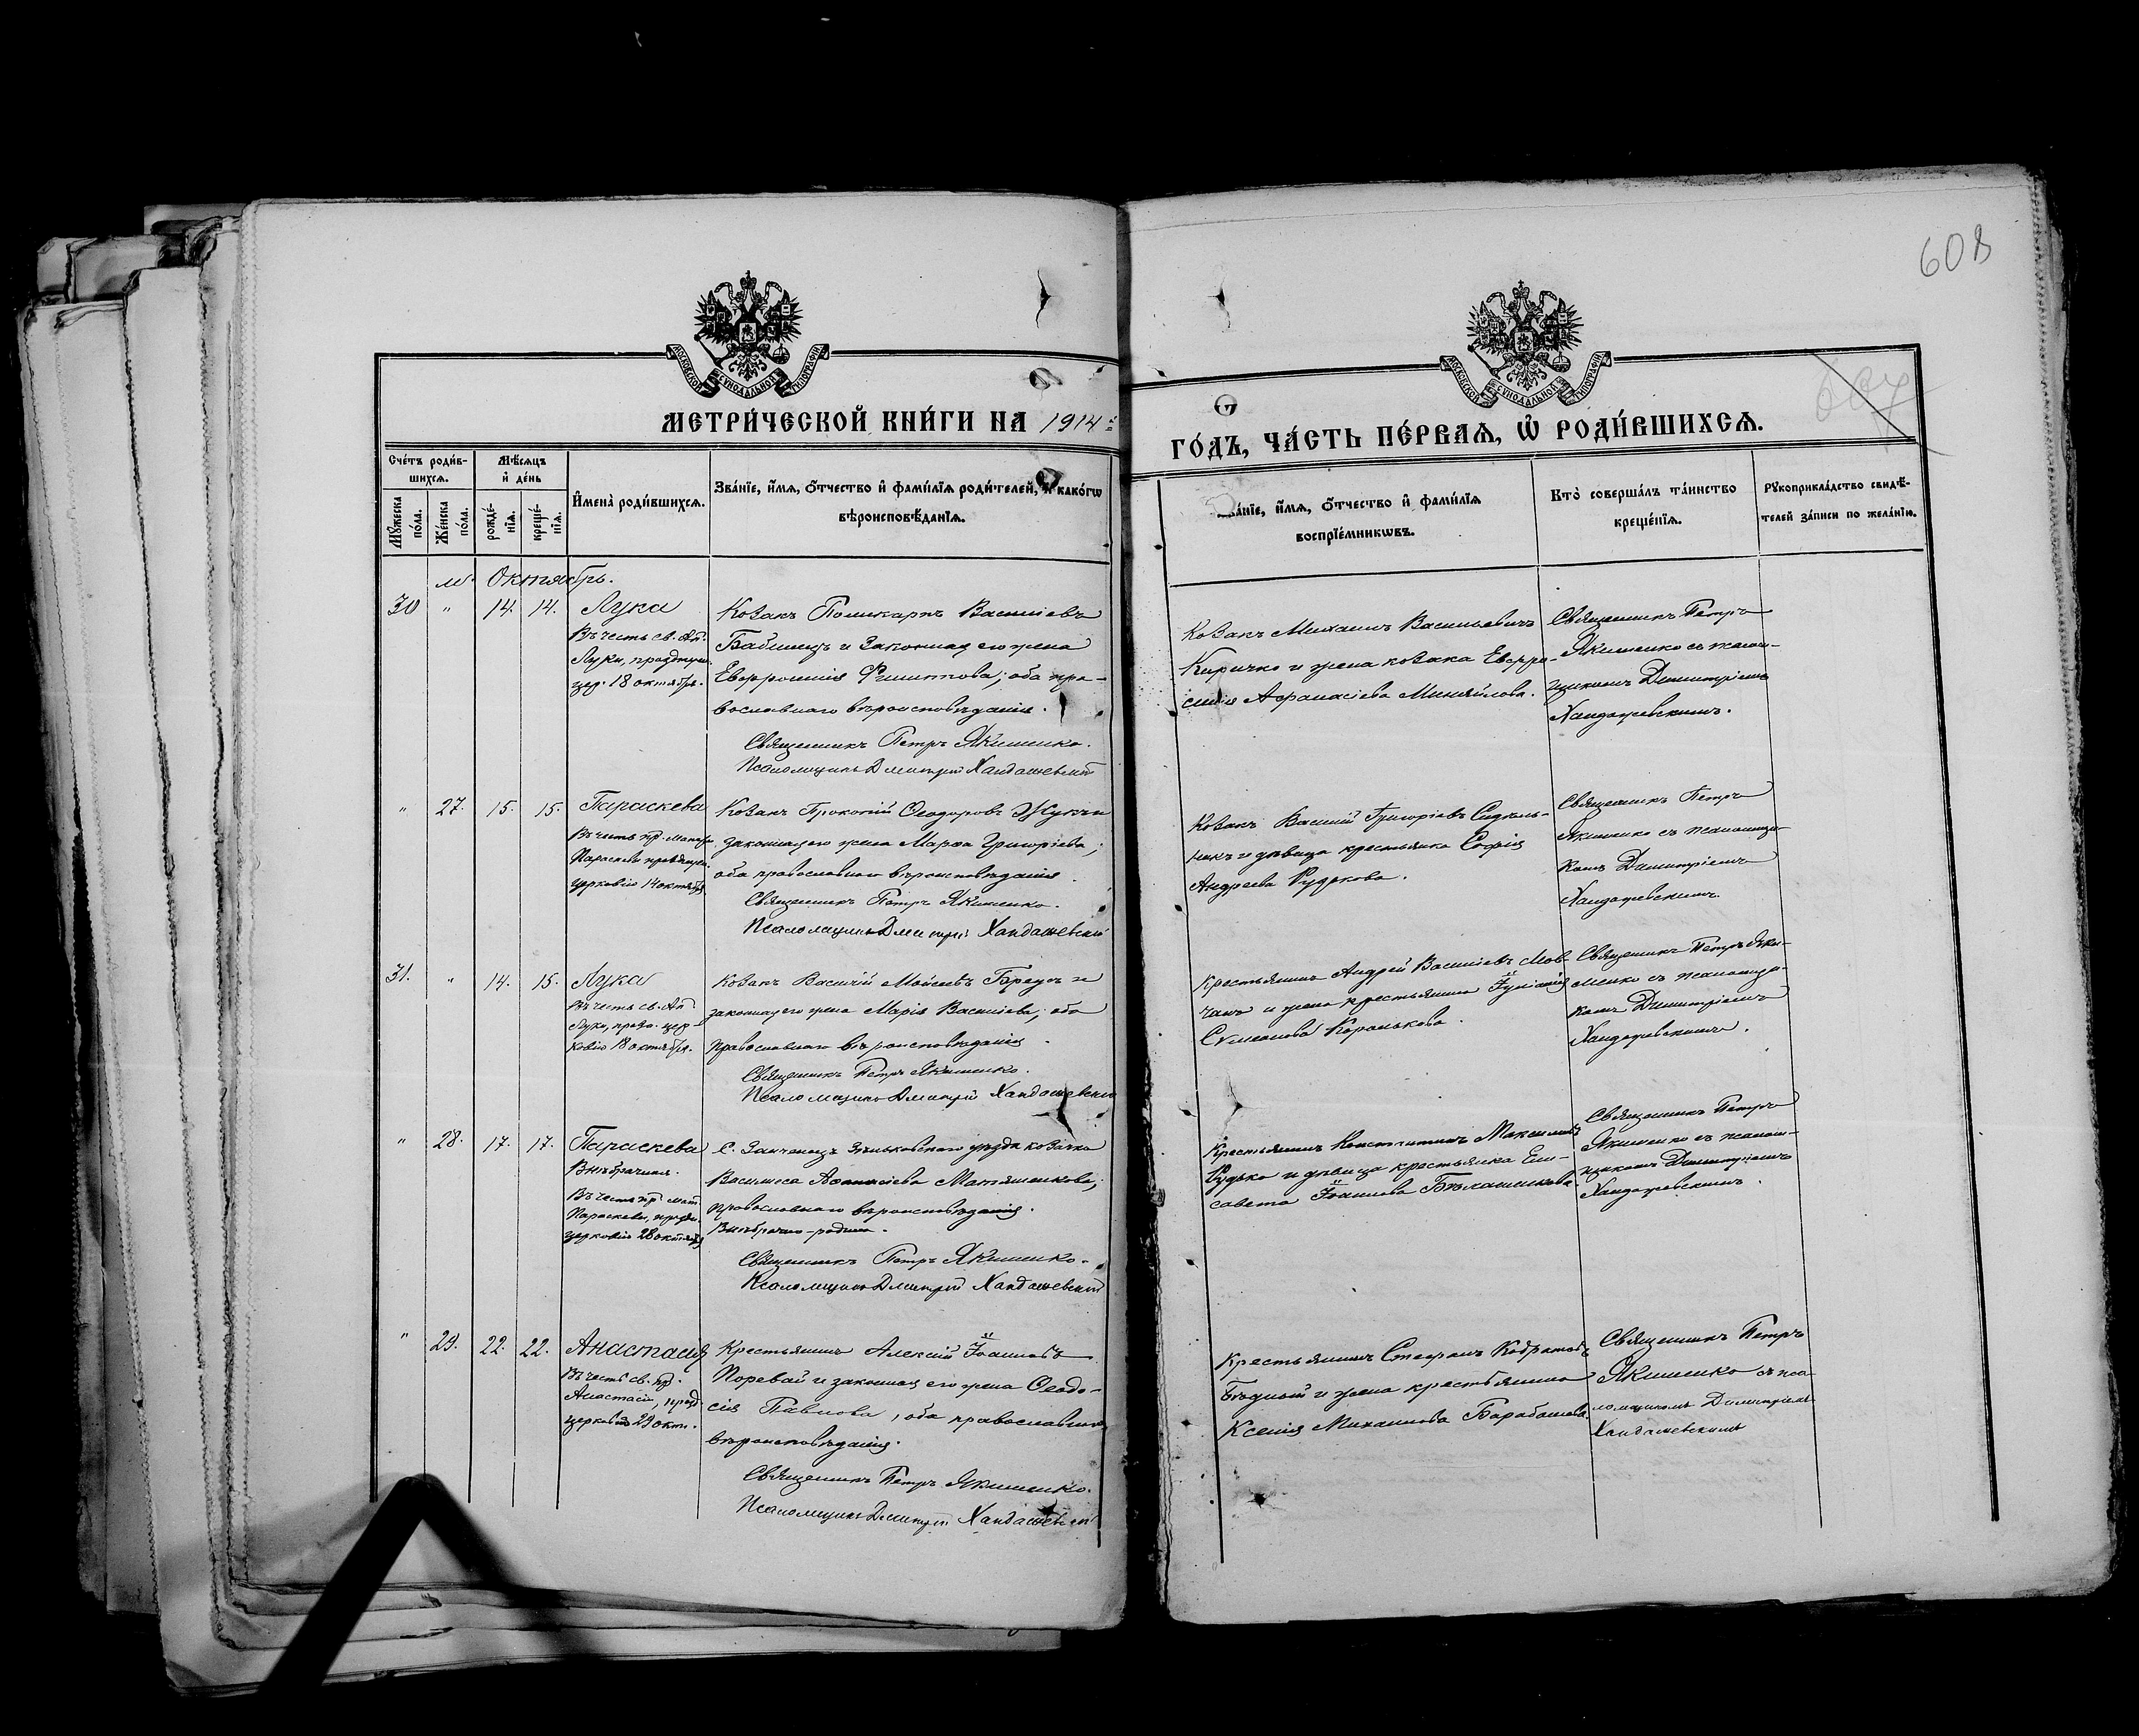 608
МОСКОВСКОЙ СѴНОДАЛЬНОЙ ТИПОГРАФІИ
МОСКОВСКОЙ СѴНОДАЛЬНОЙ ТИПОГРАФІИ
МЕТРИ́ЧЕСКОЙ КНИ́ГИ НА 1914
ГО́ДЪ, ЧА́СТЬ ПЕ́РВАЯ, Ѿ РОДИ́ВШИХСЯ.
Сче́тъ роди́в-
шихся.
Мѣсяцъ
и де́нь
Мꙋжеска
по́ла.
Же́нска
по́ла.
рожде́-
нія.
креще́-
нія.
Имена̀ роди́вшихся.
Зва́ніе, и́мя, о́тчество и фами́лія роди́телей, и како́гѡ
вѣроисповѣ́данія.
Зва́ніе, и́мя, о́тчество и фами́лія
воспріе́мникѡвъ.
Кто̀ соверша́лъ та́инство
креще́нія.
Рꙋкоприкла́дство свидѣ́-
телей за́писи по жела́нію.
м. Октябрь.
30 " 14. 14. Лука
Въ честь св. Ап.
Луки, празднуем.
цер. 18 октября.
Козакъ Поликарпъ Василіевъ
Бабинецъ и законная его жена
Евфросинія Филиппова; оба пра-
вославнаго вѣроисповѣданія.
Священникъ Петръ Якименко.
Псаломщикъ Дмитрій Хандажевскій
Козакъ Михаилъ Васильевичъ
Киричко и жена козака Евфро-
синія Афанасіева Миняйлова.
Священникъ Петръ
Якименко съ псалом-
щикомъ Димитріемъ
Хандажевскимъ.
" 27. 15. 15. Параскева
Въ честь пр. матери
Параскевы
церковію 14 октября
Козакъ Прокопій Ѳеодоровъ Жукъ и
законная его жена Марѳа Григоріева;
оба православнаго вѣроисповѣданія.
Священникъ Петръ Якименко.
Псаломщикъ Дмитрій Хандажевскій
Козакъ Василій Григоріевъ Сидель-
никъ и дѣвица крестьянка Софія
Андреева Рудькова.
Священникъ Петръ
Якименко съ псаломщи-
комъ Димитріемъ
Хандажевскимъ.
31. " 14. 15. Лука
Въ честь св. Ап.
Луки, праздн. цер-
ковію 18 октября.
Козакъ Василій Мойсеевъ Бредунъ и
законная его жена Марія Василіева; оба
православнаго вѣроисповѣданія.
Священникъ Петръ Якименко.
Псаломщикъ Дмитрій Хандажевскій
Крестьянинъ Андрей Василіевъ Мов-
чанъ и жена крестьянина Іуліанія
Симеонова Каранькова.
Священникъ Петръ Яки-
менко съ псаломщи-
комъ Димитріемъ
Хандажевскимъ.
" 28. 17. 17. Параскева
Внѣбрачная.
Въ честь пр. мат.
Параскевы, праздн.
церковію 28 октября
С. Заиченецъ Зѣньковскаго уѣзда козачка
Василиса Аѳанасіева Матяшенкова;
православнаго вѣроисповѣданія.
Внѣбрачно-родила.
Священникъ Петръ Якименко.
Псаломщикъ Дмитрій Хандажевскій
Крестьянинъ Константинъ Максимовъ
Рудько и дѣвица крестьянка Ели-
савета Іоаннова Бѣлашенкова.
Священникъ Петръ
Якименко съ псалом-
щикомъ Димитріемъ
Хандажевскимъ.
" 29. 22. 22. Анастасія
Въ честь св. пр.
Анастасіи, празд.
церковію 29 окт.
Крестьянинъ Алексій Іоанновъ
Поревай и законная его жена Ѳеодо-
сія Павлова, оба православнаго
вѣроисповѣданія.
Священникъ Петръ Якименко.
Псаломщикъ Дмитрій Хандажевскій
Крестьянинъ Стефанъ Кодратовъ
Бѣдный и жена крестьянина
Ксенія Михаилова Барабашева.
Священникъ Петръ
Якименко съ пса-
ломщикомъ Димитріемъ
Хандажевскимъ